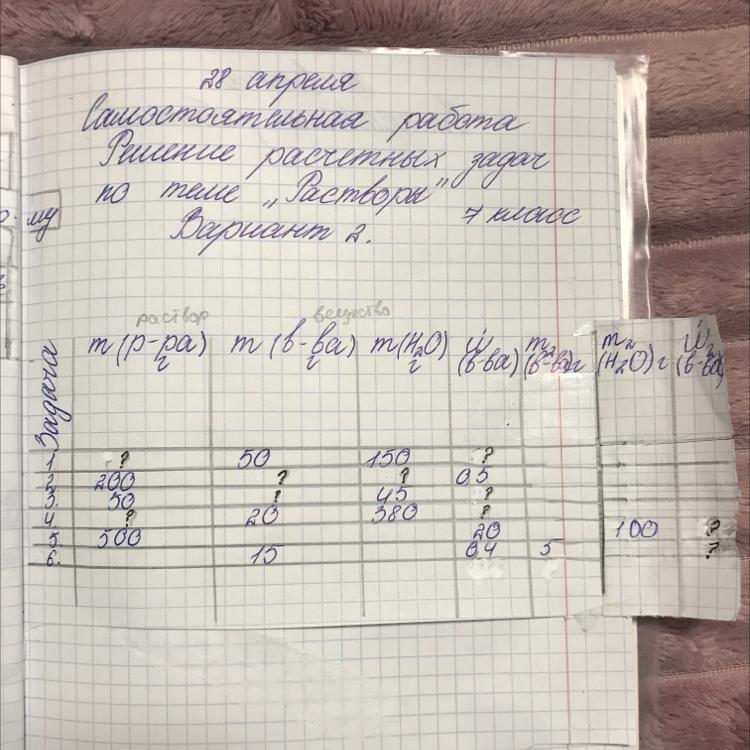 28 апреля
Самостоятельная работа
Решение расчетных задач
по теме „Растворы"
7 класс
Вариант 2.
му
раствор вещество
Задача m (р-ра) г m (в-ва) г m(H₂O) г ω (в-ва) m₂ (в-ва)г m₂ (H₂O) г ω₂ (в-ва)
1 ? 50 150 ?
2. 200 ? ? 05
3. 50 ? 45 ?
4. ? 20 380 ?
5. 500 20 100 ?
6. 15 04 5 ?